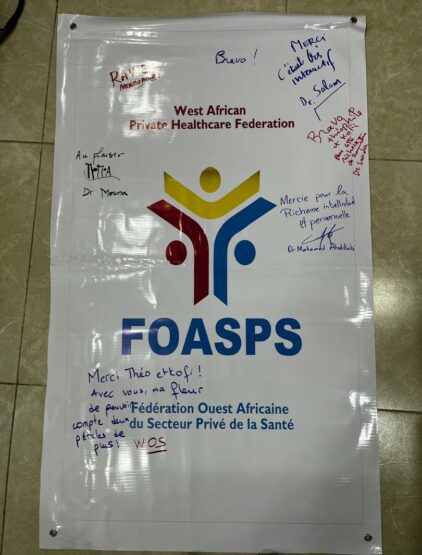 Bravo !
MERCI
c'était très
interactif
Dr. Salam
West African
Private Healthcare Federation
Bravo
et Kofi
Au plaisir
Dr Mouna
Mercie pour la
Richesse intellectuel
et personnelle
Dr Mohamed
FOASPS
Merci Théo et Kofi !
Avec vous, ma fleur
de pouvoir
compte deux
pétales de
plus !
WOS
Fédération Ouest Africaine
du Secteur Privé de la Santé